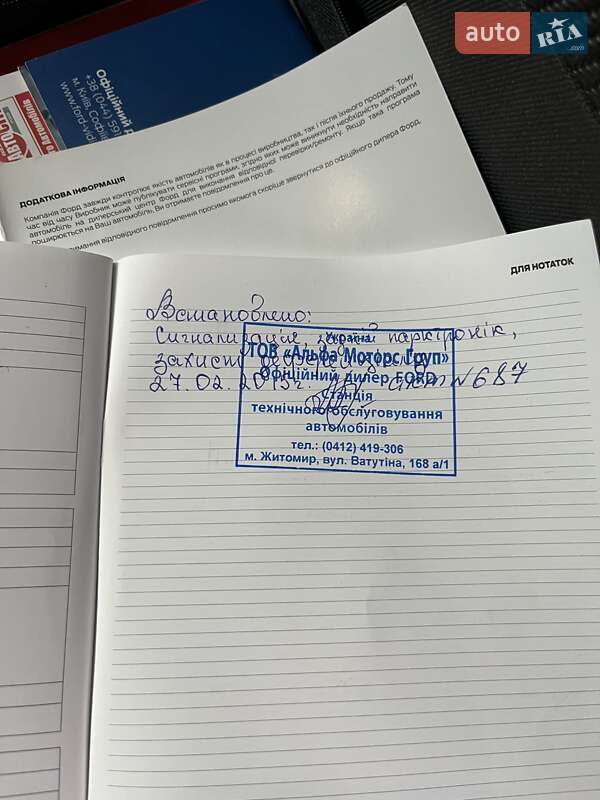 auto RIA .com
Офіційний д
+38 (044) 591
м. Київ, Софі
www.ford-vid
ДОДАТКОВА ІНФОРМАЦІЯ
Компанія Форд завжди контролює якість автомобілів як в процесі виробництва, так і після їхнього продажу. Тому
час від часу Виробник може публікувати сервісні програми, згідно яких може виникнути необхідність направити
автомобіль на дилерський центр Форд для виконання відповідної перевірки/ремонту. Якщо така програма
поширюється на Ваш автомобіль, Ви отримаєте повідомлення про це.
отримання відповідного повідомлення просимо якомога скоріше звернутися до офіційного дилера Форд.
ДЛЯ НОТАТОК
Встановлено:
Сигналізація, задній парктронік,
захист
27.02.2015г. акт №687
Україна
ТОВ «Альфа Моторс Груп»
Офіційний дилер FORD
Станція
технічного обслуговування
автомобілів
тел.: (0412) 419-306
м. Житомир, вул. Ватутіна, 168 а/1